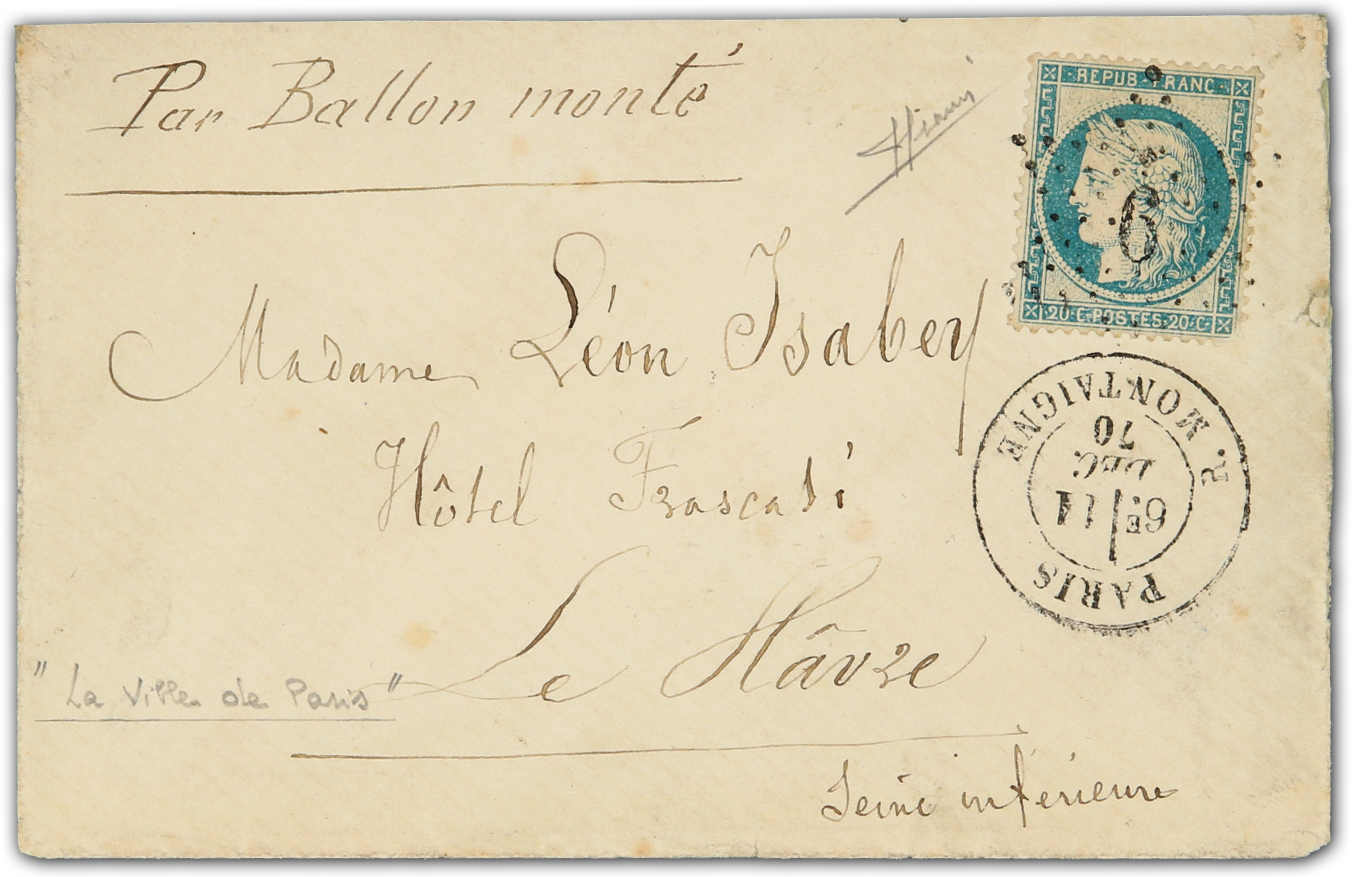 Par Ballon monté
REPUB. FRANC
6
20·C·POSTES·20·C·
Madame Léon Isabey
Hôtel Frascati
Le Hâvre
Seine inférieure
"La Ville de Paris"
PARIS
6E 11
DEC.
70
R. MONTAIGNE